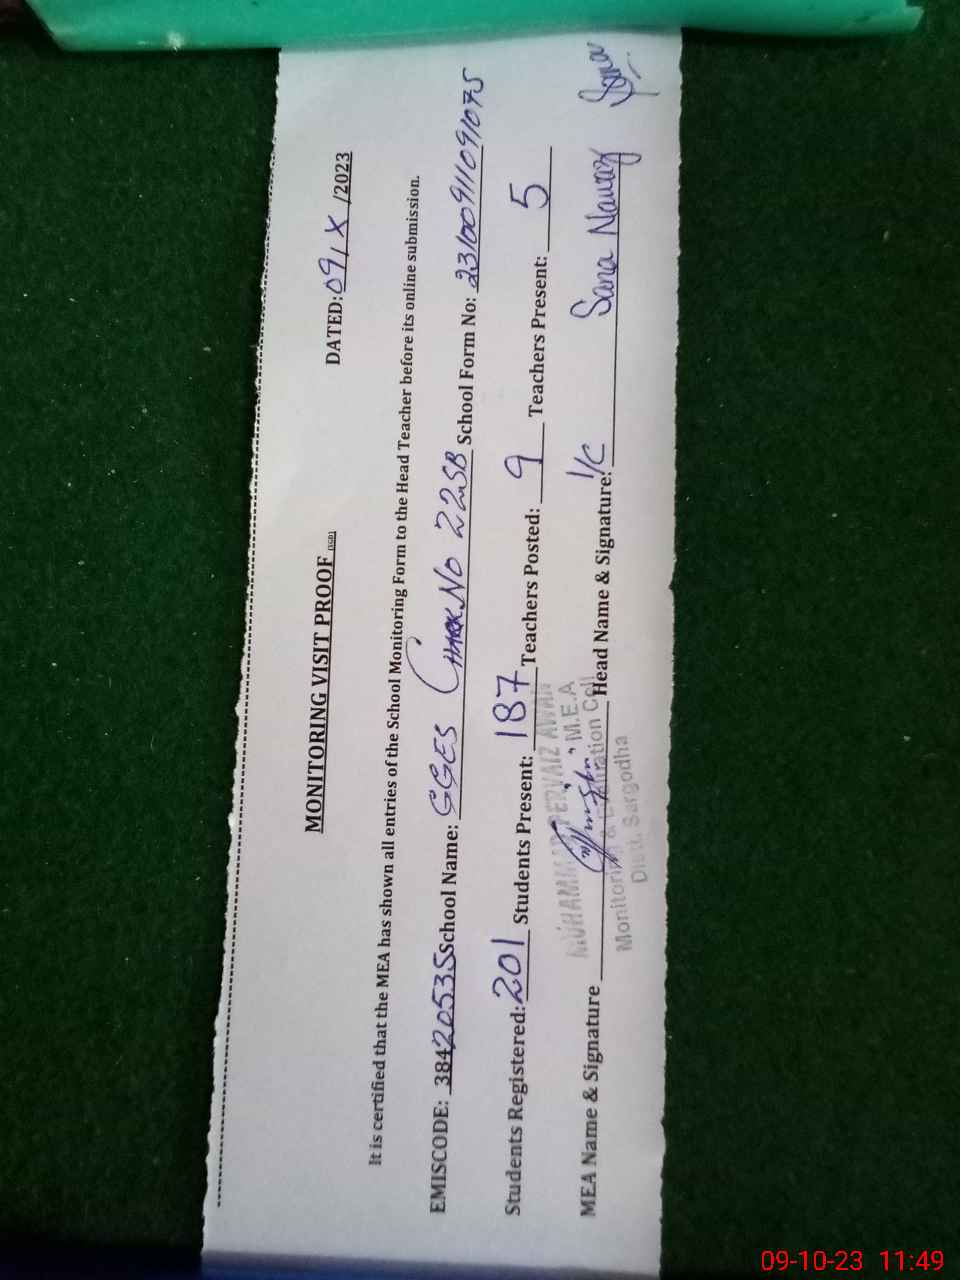 MONITORING VISIT PROOF (SGD)
DATED: 09/X/2023
It is certified that the MEA has shown all entries of the School Monitoring Form to the Head Teacher before its online submission.
EMISCODE: 38420535 School Name: GGES Chak No 22SB School Form No: 23100911091075
Students Registered: 201 Students Present: 187 Teachers Posted: 9 Teachers Present: 5
MEA Name & Signature Head Name & Signature: I/C Sana Nawaz Sana
MUHAMMAD PERVAIZ AWAN
M.E.A
Monitoring & Evaluation Cell
Distt. Sargodha
09-10-23 11:49